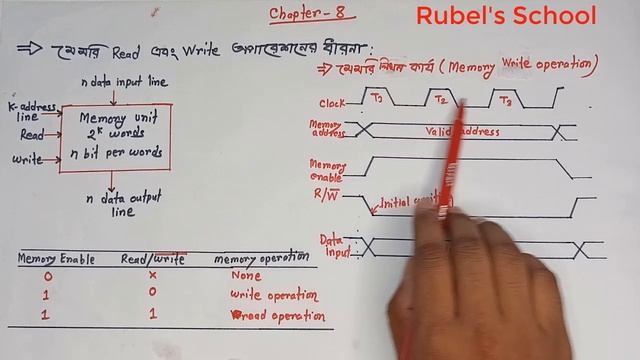 Chapter-8
Rubel's School
⇒ মেমরি Read এবং Write অপারেশনের ধারনা:
n data input line
K-address line
Read
Write
Memory unit
2^k words
n bit per words
n data output line
Memory Enable Read/Write memory operation
0 x None
1 0 write operation
1 1 read operation
⇒ মেমরি লিখন কার্য (Memory Write operation)
Clock T1 T2 T3
Memory address Valid address
Memory enable
R/W̅ Initial
Data Input